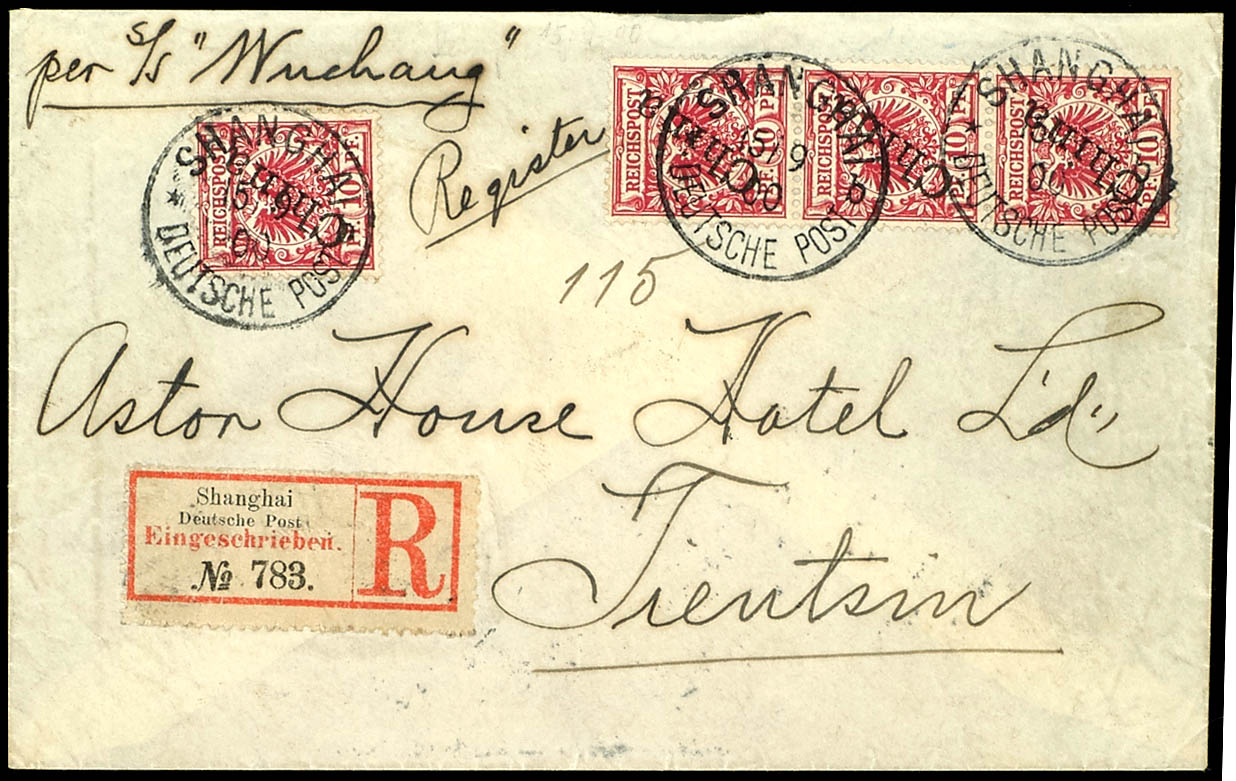 per s/s "Wuchang"
15.9.00
Register
REICHSPOST 10 PF. China
SHANGHAI
15/9
00
* DEUTSCHE POST *
REICHSPOST 10 PF. China
REICHSPOST 10 PF. China
REICHSPOST 10 PF. China
SHANGHAI
15/9
00
DEUTSCHE POST b
SHANGHAI
00
* DEUTSCHE POST
115
Astor House Hotel Ld,,
Tientsin
Shanghai
Deutsche Post
Eingeschrieben.
№ 783.
R